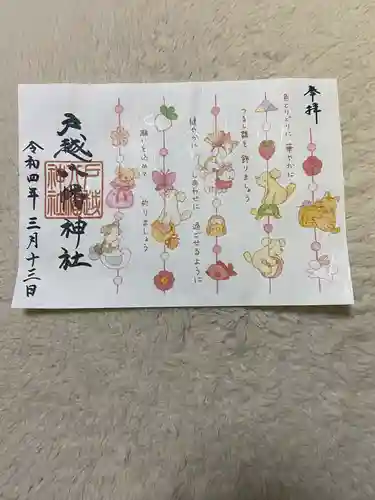 奉拝
色とりどりに 華やかに
つるし雛を 飾りましょう
健やかに しあわせに 過ごせるように
願いを込めて 飾りましょう
戸越八幡神社
令和四年 三月十三日